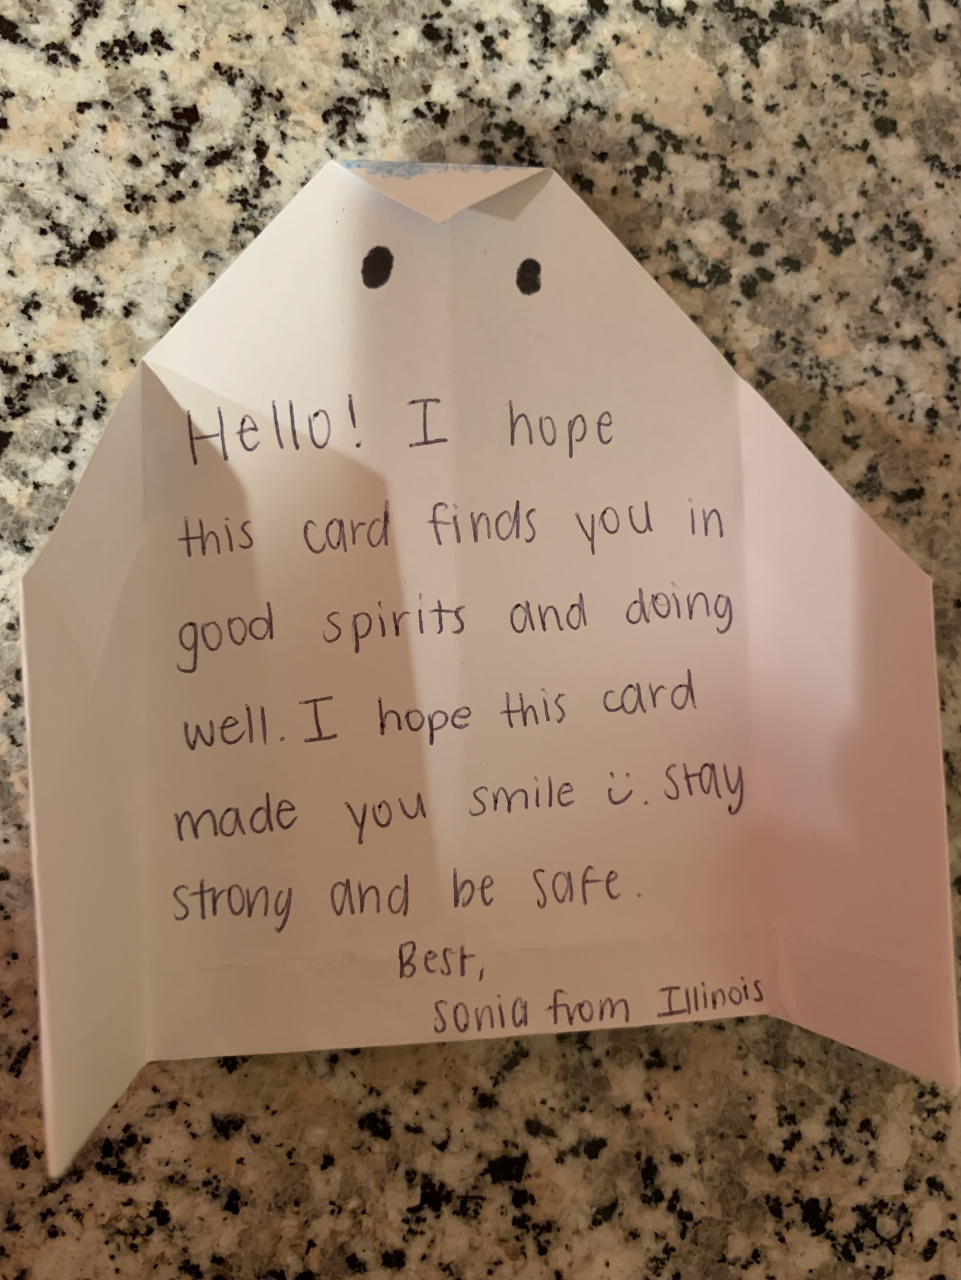 Hello! I hope
this card finds you in
good spirits and doing
well. I hope this card
made you smile :). stay
strong and be safe.
Best,
sonia from Illinois